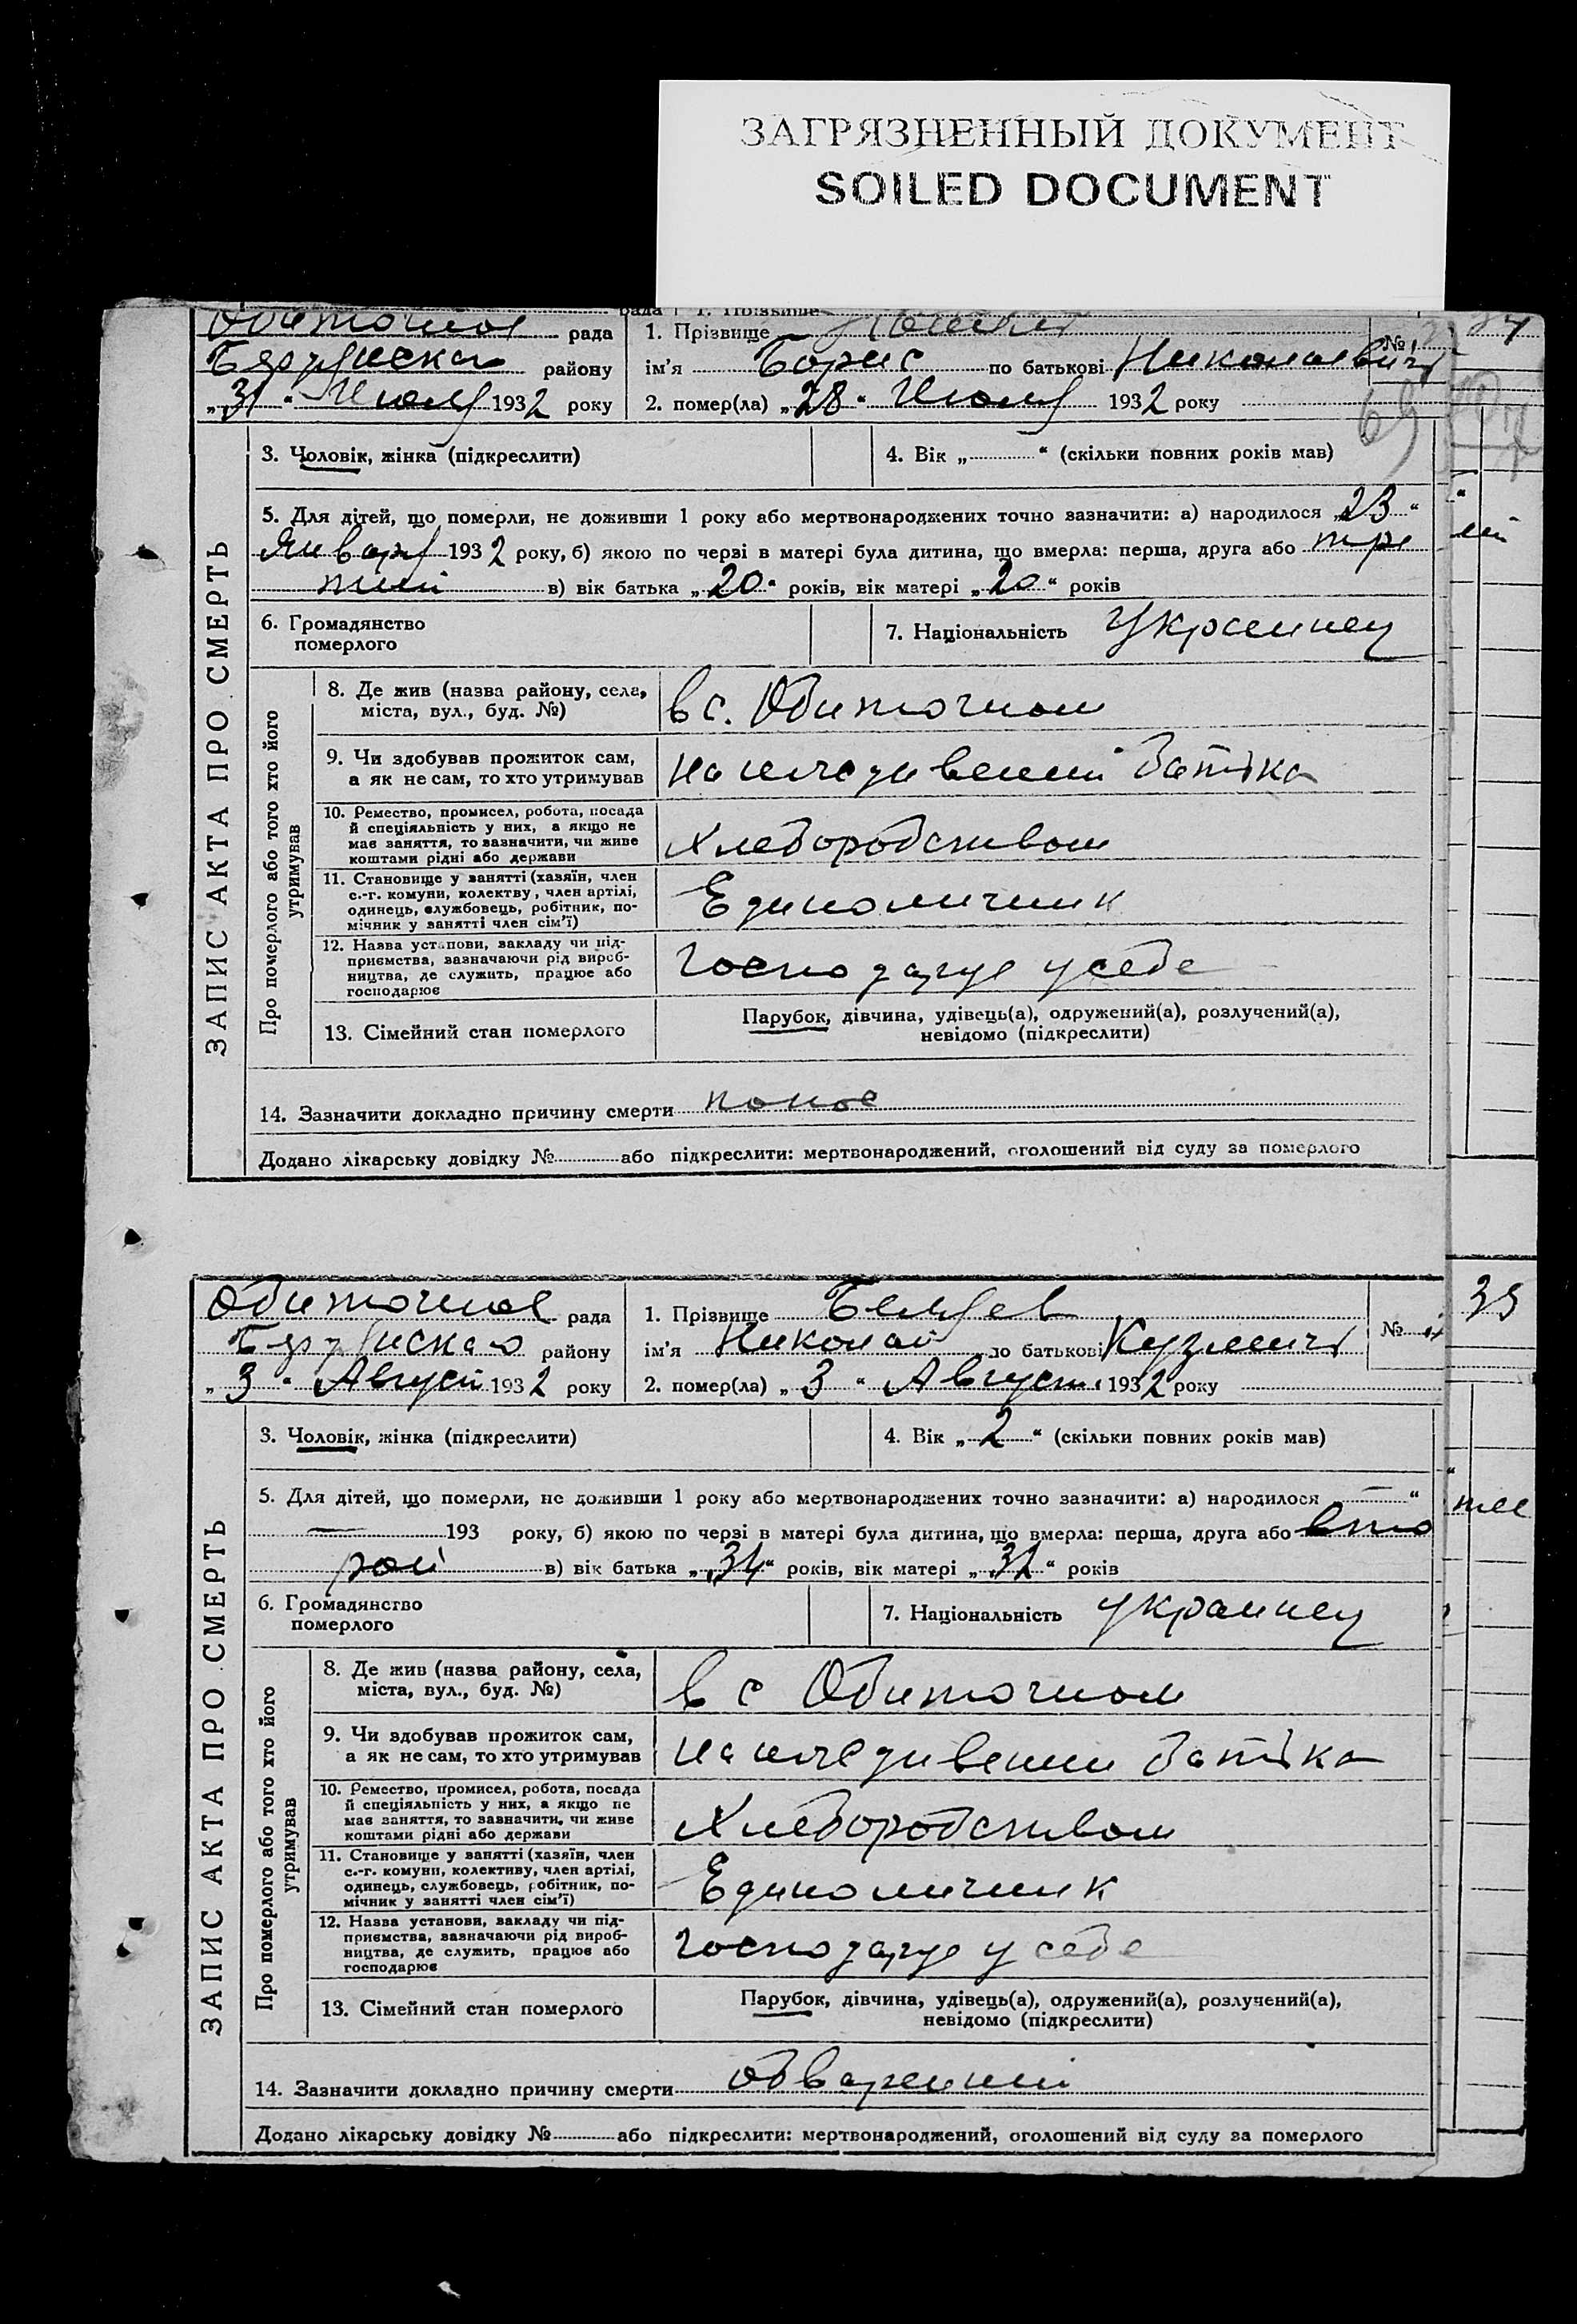 ЗАГРЯЗНЕННЫЙ ДОКУМЕНТ
SOILED DOCUMENT
Обиточное рада 1. Прізвище №
району ім'я Борис по батькові Николаевич
„31“ Июля 1932 року 2. помер(ла) „28“ Июля 1932 року
69
ЗАПИС АКТА ПРО СМЕРТЬ
3. Чоловік, жінка (підкреслити) 4. Вік „ “ (скільки повних років мав)
5. Для дітей, що померли, не доживши 1 року або мертвонароджених точно зазначити: а) народилося „23“
Января 1932 року, б) якою по черзі в матері була дитина, що вмерла: перша, друга або тре
тий в) вік батька „20“ років, вік матері „20“ років
6. Громадянство
померлого
7. Національність Украинец
Про померлого або того хто його
утримував
8. Де жив (назва району, села,
міста, вул., буд. №)
в с. Обиточном
9. Чи здобував прожиток сам,
а як не сам, то хто утримував
на иждивении батька
10. Ремество, промисел, робота, посада
й спеціяльність у них, а якщо не
має заняття, то зазначити, чи живе
коштами рідні або держави
Хлеборобством
11. Становище у занятті (хазяїн, член
с.-г. комуни, колектву, член артілі,
одинець, службовець, робітник, по-
мічник у занятті член сім'ї)
Единоличник
12. Назва установи, закладу чи під-
приємства, зазначаючи рід вироб-
ництва, де служить, працює або
господарює
Господарує у себе
13. Сімейний стан померлого
Парубок, дівчина, удівець(а), одружений(а), розлучений(а),
невідомо (підкреслити)
14. Зазначити докладно причину смерти понос
Додано лікарську довідку № або підкреслити: мертвонароджений, оголошений від суду за померлого
Обиточное рада 1. Прізвище №
району ім'я Николай по батькові Кузмич
„3“ Август 1932 року 2. помер(ла) „3“ Август 1932 року
35
ЗАПИС АКТА ПРО СМЕРТЬ
3. Чоловік, жінка (підкреслити) 4. Вік „2“ (скільки повних років мав)
5. Для дітей, що померли, не доживши 1 року або мертвонароджених точно зазначити: а) народилося — “
— 193 року, б) якою по черзі в матері була дитина, що вмерла: перша, друга або вто
рой в) вік батька „34“ років, вік матері „32“ років
6. Громадянство
померлого
7. Національність украинец
Про померлого або того хто його
утримував
8. Де жив (назва району, села,
міста, вул., буд. №)
в с Обиточном
9. Чи здобував прожиток сам,
а як не сам, то хто утримував
на иждивении батька
10. Ремество, промисел, робота, посада
й спеціяльність у них, а якщо не
має заняття, то зазначити, чи живе
коштами рідні або держави
Хлеборобством
11. Становище у занятті (хазяїн, член
с.-г. комуни, колективу, член артілі,
одинець, службовець, робітник, по-
мічник у занятті член сім'ї)
Единоличник
12. Назва установи, закладу чи під-
приємства, зазначаючи рід вироб-
ництва, де служить, працює або
господарює
Господарує у себе
13. Сімейний стан померлого
Парубок, дівчина, удівець(а), одружений(а), розлучений(а),
невідомо (підкреслити)
14. Зазначити докладно причину смерти обварений
Додано лікарську довідку № або підкреслити: мертвонароджений, оголошений від суду за померлого